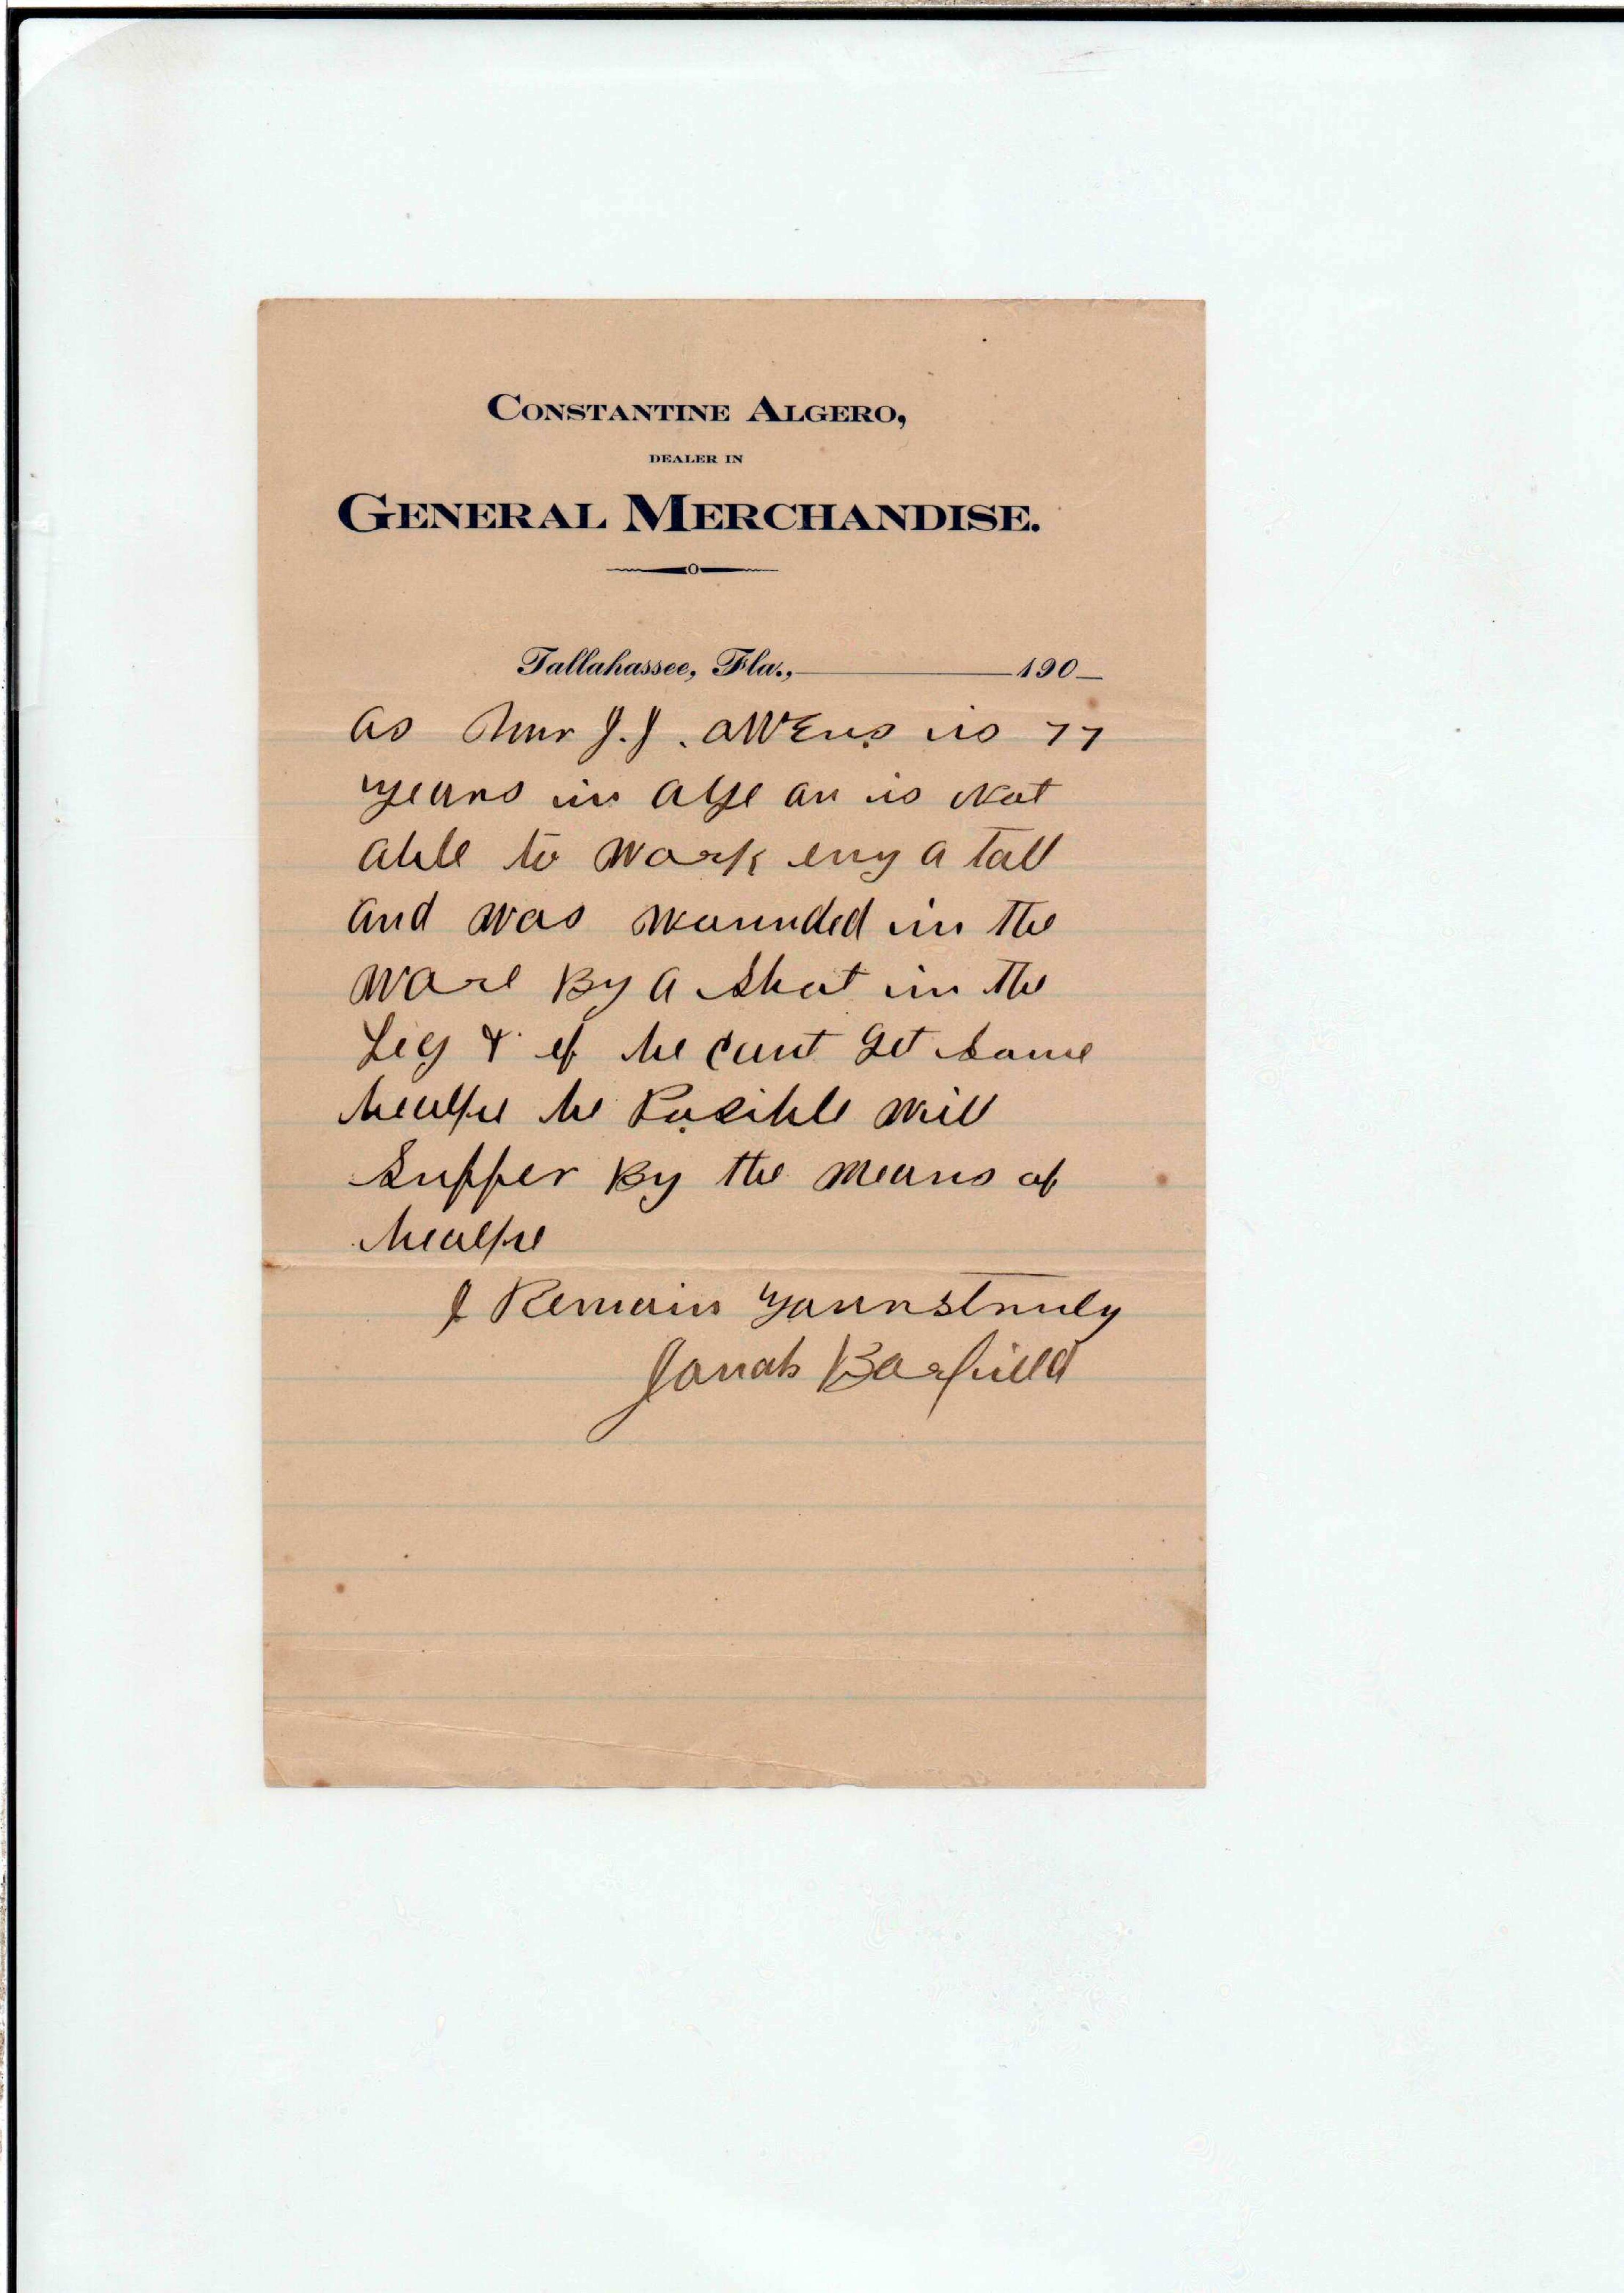 CONSTANTINE ALGERO,
DEALER IN
GENERAL MERCHANDISE.
Tallahassee, Fla., 190
as Mr J.J. Owens is 77
years in age an is Not
able to work eny a tall
and was wounded in the
ware By a shot in the
Leg & if he cant get some
healpe he Posible will
Suffer By the means of
healpe
I Remain yourstruly
Jonah Barfield